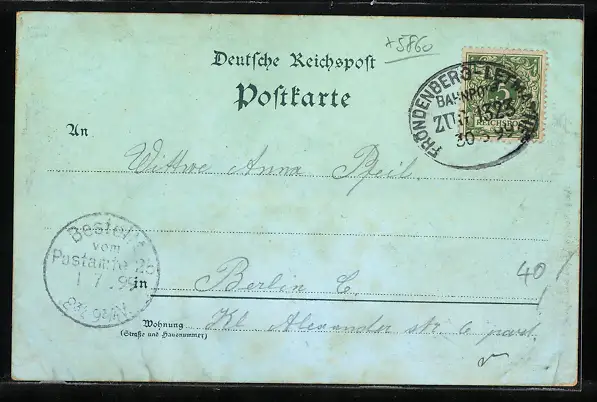 *5860
Deutsche Reichspost
Postkarte
FRÖNDENBERG-LETMATHE
BAHNPOST
ZUG 1323
30 99
5
REICHSPOST
An
Wittwe Anna Pfeil.
Bestellt
vom
Postamte 25
1 7 99
in Berlin C.
40
Wohnung
(Straße und Hausnummer)
Kl Alexander str. 6 part.